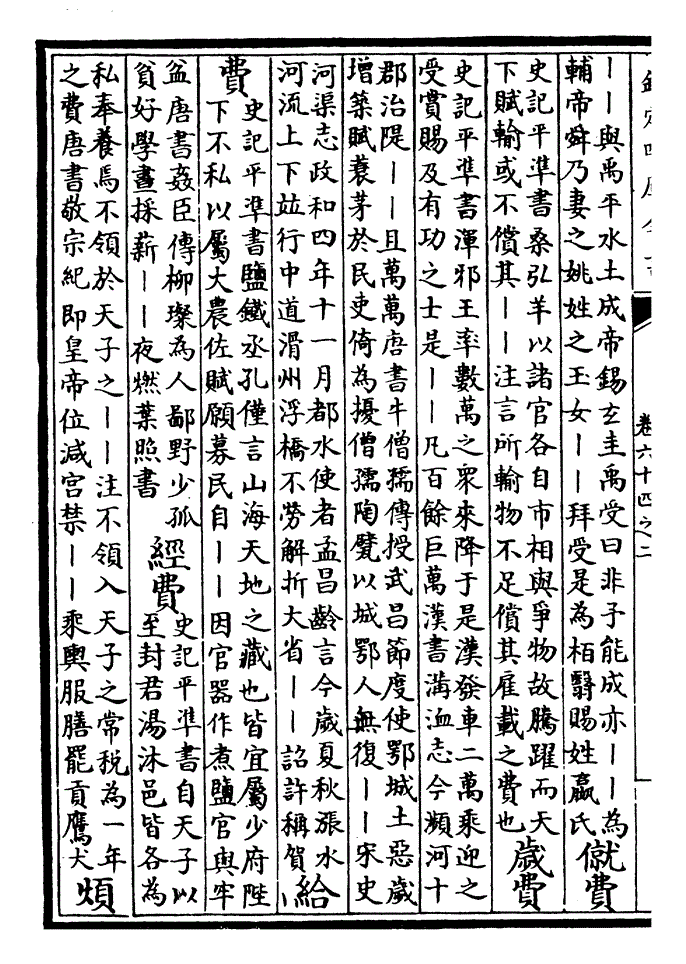 欽定四庫全書
卷六十四之二
——與禹平水土成帝錫玄圭禹受曰非予能成亦——為
輔帝舜乃妻之姚姓之玉女——拜受是為柏翳賜姓嬴氏
僦費
史記平準書桑弘羊以諸官各自市相與爭物故騰躍而天
下賦輸或不償其——注言所輸物不足償其雇載之費也
歲費
史記平準書渾邪王率數萬之衆來降于是漢發車二萬乘迎之
受賞賜及有功之士是——凡百餘巨萬漢書溝洫志今瀕河十
郡治隄——且萬萬唐書牛僧孺傳授武昌節度使鄂城土惡歲
增築賦蓑茅於民吏倚為擾僧孺陶甓以城鄂人無復——宋史
河渠志政和四年十一月都水使者孟昌齡言今歲夏秋漲水
河流上下竝行中道滑州浮橋不勞解折大省——詔許稱賀
給
費
史記平準書鹽鐵丞孔僅言山海天地之藏也皆宜屬少府陛
下不私以屬大農佐賦願募民自——因官器作煮鹽官與牢
盆唐書姦臣傳柳璨為人鄙野少孤
貧好學晝採薪——夜燃葉照書
經費
史記平準書自天子以
至封君湯沐邑皆各為
私奉養焉不領於天子之——注不領入天子之常税為一年
之費唐書敬宗紀即皇帝位減宮禁——乘輿服膳罷貢鷹犬
煩